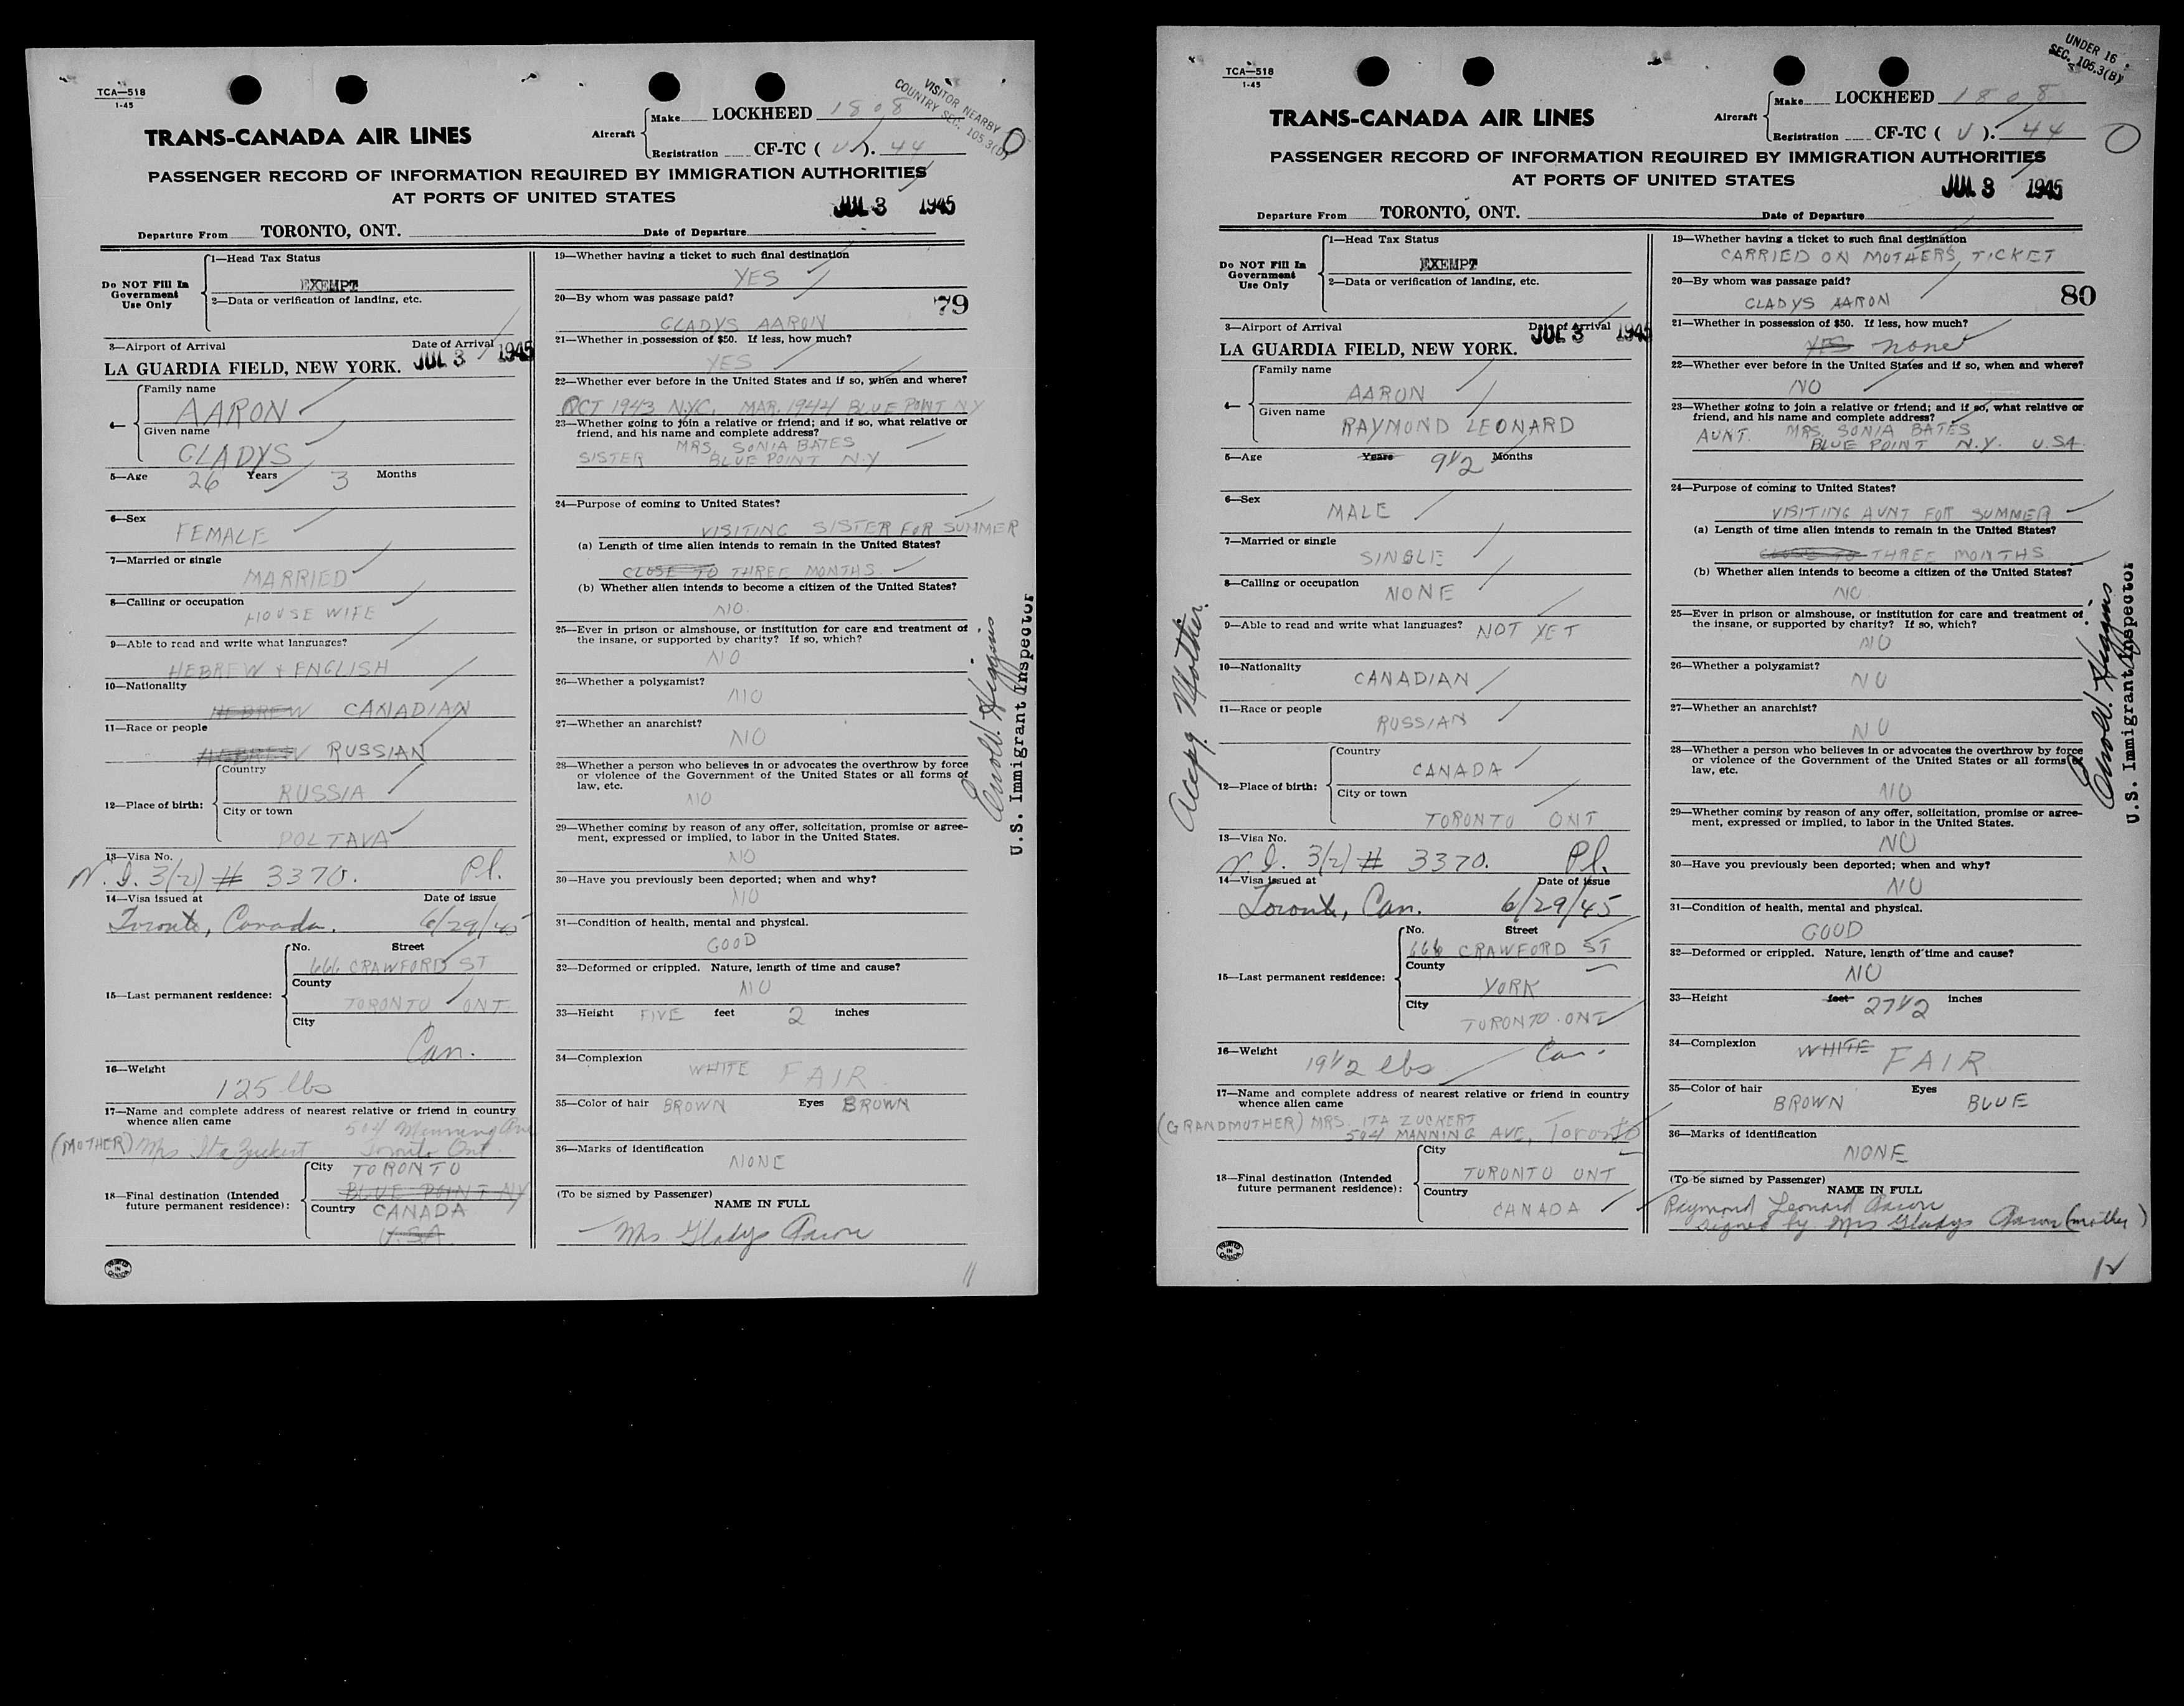 TCA—518
1-45
VISITOR NEARBY
COUNTRY SEC. 105.3(D)
TRANS-CANADA AIR LINES
Aircraft
Make LOCKHEED 1808
Registration CF-TC ( V ). 44
PASSENGER RECORD OF INFORMATION REQUIRED BY IMMIGRATION AUTHORITIES
AT PORTS OF UNITED STATES
JUL 3 1945
Departure From TORONTO, ONT. Date of Departure
Do NOT Fill In
Government
Use Only
1—Head Tax Status
EXEMPT
2—Data or verification of landing, etc.
3—Airport of Arrival Date of Arrival
LA GUARDIA FIELD, NEW YORK. JUL 3 1945
4—
Family name
AARON
Given name
GLADYS
5—Age 26 Years 3 Months
6—Sex
FEMALE
7—Married or single
MARRIED
8—Calling or occupation
HOUSE WIFE
9—Able to read and write what languages?
HEBREW + ENGLISH
10—Nationality
HEBREW CANADIAN
11—Race or people
HEBREW RUSSIAN
12—Place of birth:
Country
RUSSIA
City or town
POLTAVA
13—Visa No.
N. I. 3(2) # 3370. Pl.
14—Visa issued at Date of issue
Toronto, Canada. 6/29/45
15—Last permanent residence:
No. Street
666 CRAWFORD ST
County
TORONTO ONT
City
Can.
16—Weight
125 lbs
17—Name and complete address of nearest relative or friend in country
whence alien came
504 Manning Ave
(MOTHER) Mrs Ita Zuckert Toronto Ont.
18—Final destination (Intended
future permanent residence):
City TORONTO
BLUE POINT NY
Country CANADA
U.S.A.
19—Whether having a ticket to such final destination
YES
20—By whom was passage paid?
79
GLADYS AARON
21—Whether in possession of $50. If less, how much?
YES
22—Whether ever before in the United States and if so, when and where?
OCT 1943 N.Y.C. MAR. 1944 BLUE POINT NY
23—Whether going to join a relative or friend; and if so, what relative or
friend, and his name and complete address?
MRS. SONIA BATES
SISTER BLUE POINT N.Y
24—Purpose of coming to United States?
VISITING SISTER FOR SUMMER
(a) Length of time alien intends to remain in the United States?
CLOSE TO THREE MONTHS
(b) Whether alien intends to become a citizen of the United States?
NO.
25—Ever in prison or almshouse, or institution for care and treatment of
the insane, or supported by charity? If so, which?
NO
26—Whether a polygamist?
NO
27—Whether an anarchist?
NO
28—Whether a person who believes in or advocates the overthrow by force
or violence of the Government of the United States or all forms of
law, etc.
NO
29—Whether coming by reason of any offer, solicitation, promise or agree-
ment, expressed or implied, to labor in the United States.
NO
30—Have you previously been deported; when and why?
NO
31—Condition of health, mental and physical.
GOOD
32—Deformed or crippled. Nature, length of time and cause?
NO
33—Height FIVE feet 2 inches
34—Complexion
WHITE FAIR
35—Color of hair BROWN Eyes BROWN
36—Marks of identification
NONE
(To be signed by Passenger)
NAME IN FULL
Mrs Gladys Aaron
Higgins
U.S. Immigrant Inspector
PRINTED IN CANADA
11
TCA—518
1-45
UNDER 16
SEC. 105.3(B)
TRANS-CANADA AIR LINES
Aircraft
Make LOCKHEED 1808
Registration CF-TC ( V ). 44
PASSENGER RECORD OF INFORMATION REQUIRED BY IMMIGRATION AUTHORITIES
AT PORTS OF UNITED STATES
JUL 3 1945
Departure From TORONTO, ONT. Date of Departure
Do NOT Fill In
Government
Use Only
1—Head Tax Status
EXEMPT
2—Data or verification of landing, etc.
3—Airport of Arrival Date of Arrival
LA GUARDIA FIELD, NEW YORK. JUL 3 1945
4—
Family name
AARON
Given name
RAYMOND LEONARD
5—Age Years 9 1/2 Months
6—Sex
MALE
7—Married or single
SINGLE
8—Calling or occupation
NONE
9—Able to read and write what languages? NOT YET
10—Nationality
CANADIAN
11—Race or people
RUSSIAN
12—Place of birth:
Country
CANADA
City or town
TORONTO ONT
Accpg. Mother.
13—Visa No.
N. I. 3(2) # 3370. Pl.
14—Visa issued at Date of issue
Toronto, Can. 6/29/45
15—Last permanent residence:
No. Street
666 CRAWFORD ST
County
YORK
City
TORONTO. ONT
16—Weight 19 1/2 lbs Can.
17—Name and complete address of nearest relative or friend in country
whence alien came
(GRANDMOTHER) MRS. ITA ZUCKERT
504 MANNING AVE, Toronto
18—Final destination (Intended
future permanent residence):
City
TORONTO ONT
Country
CANADA
19—Whether having a ticket to such final destination
CARRIED ON MOTHERS TICKET
20—By whom was passage paid?
GLADYS AARON 80
21—Whether in possession of $50. If less, how much?
YES none
22—Whether ever before in the United States and if so, when and where?
NO
23—Whether going to join a relative or friend; and if so, what relative or
friend, and his name and complete address?
AUNT. MRS. SONIA BATES
BLUE POINT N.Y. U.S.A.
24—Purpose of coming to United States?
VISITING AUNT FOR SUMMER
(a) Length of time alien intends to remain in the United States?
CLOSE TO THREE MONTHS
(b) Whether alien intends to become a citizen of the United States?
NO
25—Ever in prison or almshouse, or institution for care and treatment of
the insane, or supported by charity? If so, which?
NO
26—Whether a polygamist?
NO
27—Whether an anarchist?
NO
28—Whether a person who believes in or advocates the overthrow by force
or violence of the Government of the United States or all forms of
law, etc.
NO
29—Whether coming by reason of any offer, solicitation, promise or agree-
ment, expressed or implied, to labor in the United States.
NO
30—Have you previously been deported; when and why?
NO
31—Condition of health, mental and physical.
GOOD
32—Deformed or crippled. Nature, length of time and cause?
NO
33—Height feet 27 1/2 inches
34—Complexion
WHITE FAIR
35—Color of hair Eyes
BROWN BLUE
36—Marks of identification
NONE
(To be signed by Passenger)
NAME IN FULL
Raymond Leonard Aaron
signed by Mrs Gladys Aaron (mother)
Higgins
U.S. Immigrant Inspector
PRINTED IN CANADA
12